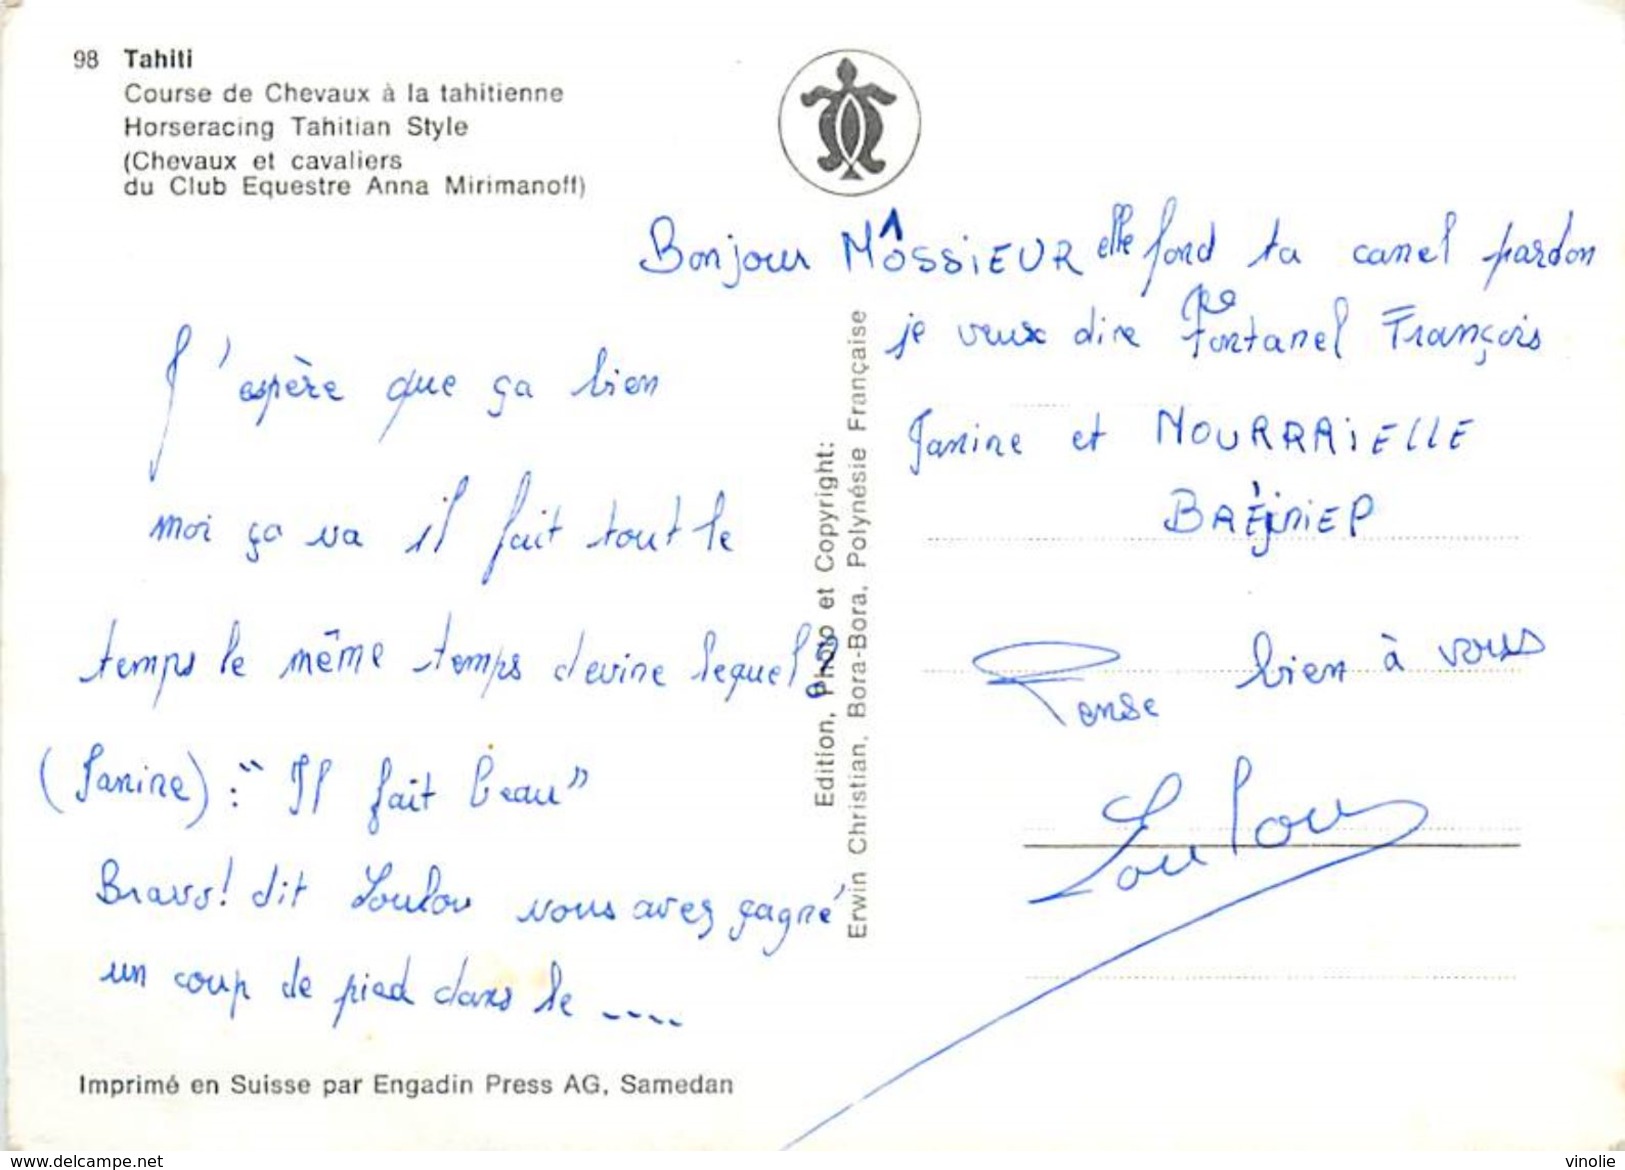 98 Tahiti
Course de Chevaux à la tahitienne
Horseracing Tahitian Style
(Chevaux et cavaliers
du Club Equestre Anna Mirimanoff)
Bonjour MÔSSiEUR elle fond ta canel pardon
je veux dire Fontanel François
Janine et MOURRAiELLE
J'espère que ça bien
moi ça va il fait tout le
temps le même temps devine lequel?
(Janine) : "Il fait beau"
Bravo! dit Loulou vous avez gagné
un coup de pied dans le ....
Pense bien à vous
Loulou
Edition, Photo et Copyright:
Erwin Christian, Bora-Bora, Polynésie Française
Imprimé en Suisse par Engadin Press AG, Samedan
www.delcampe.net
vinolie